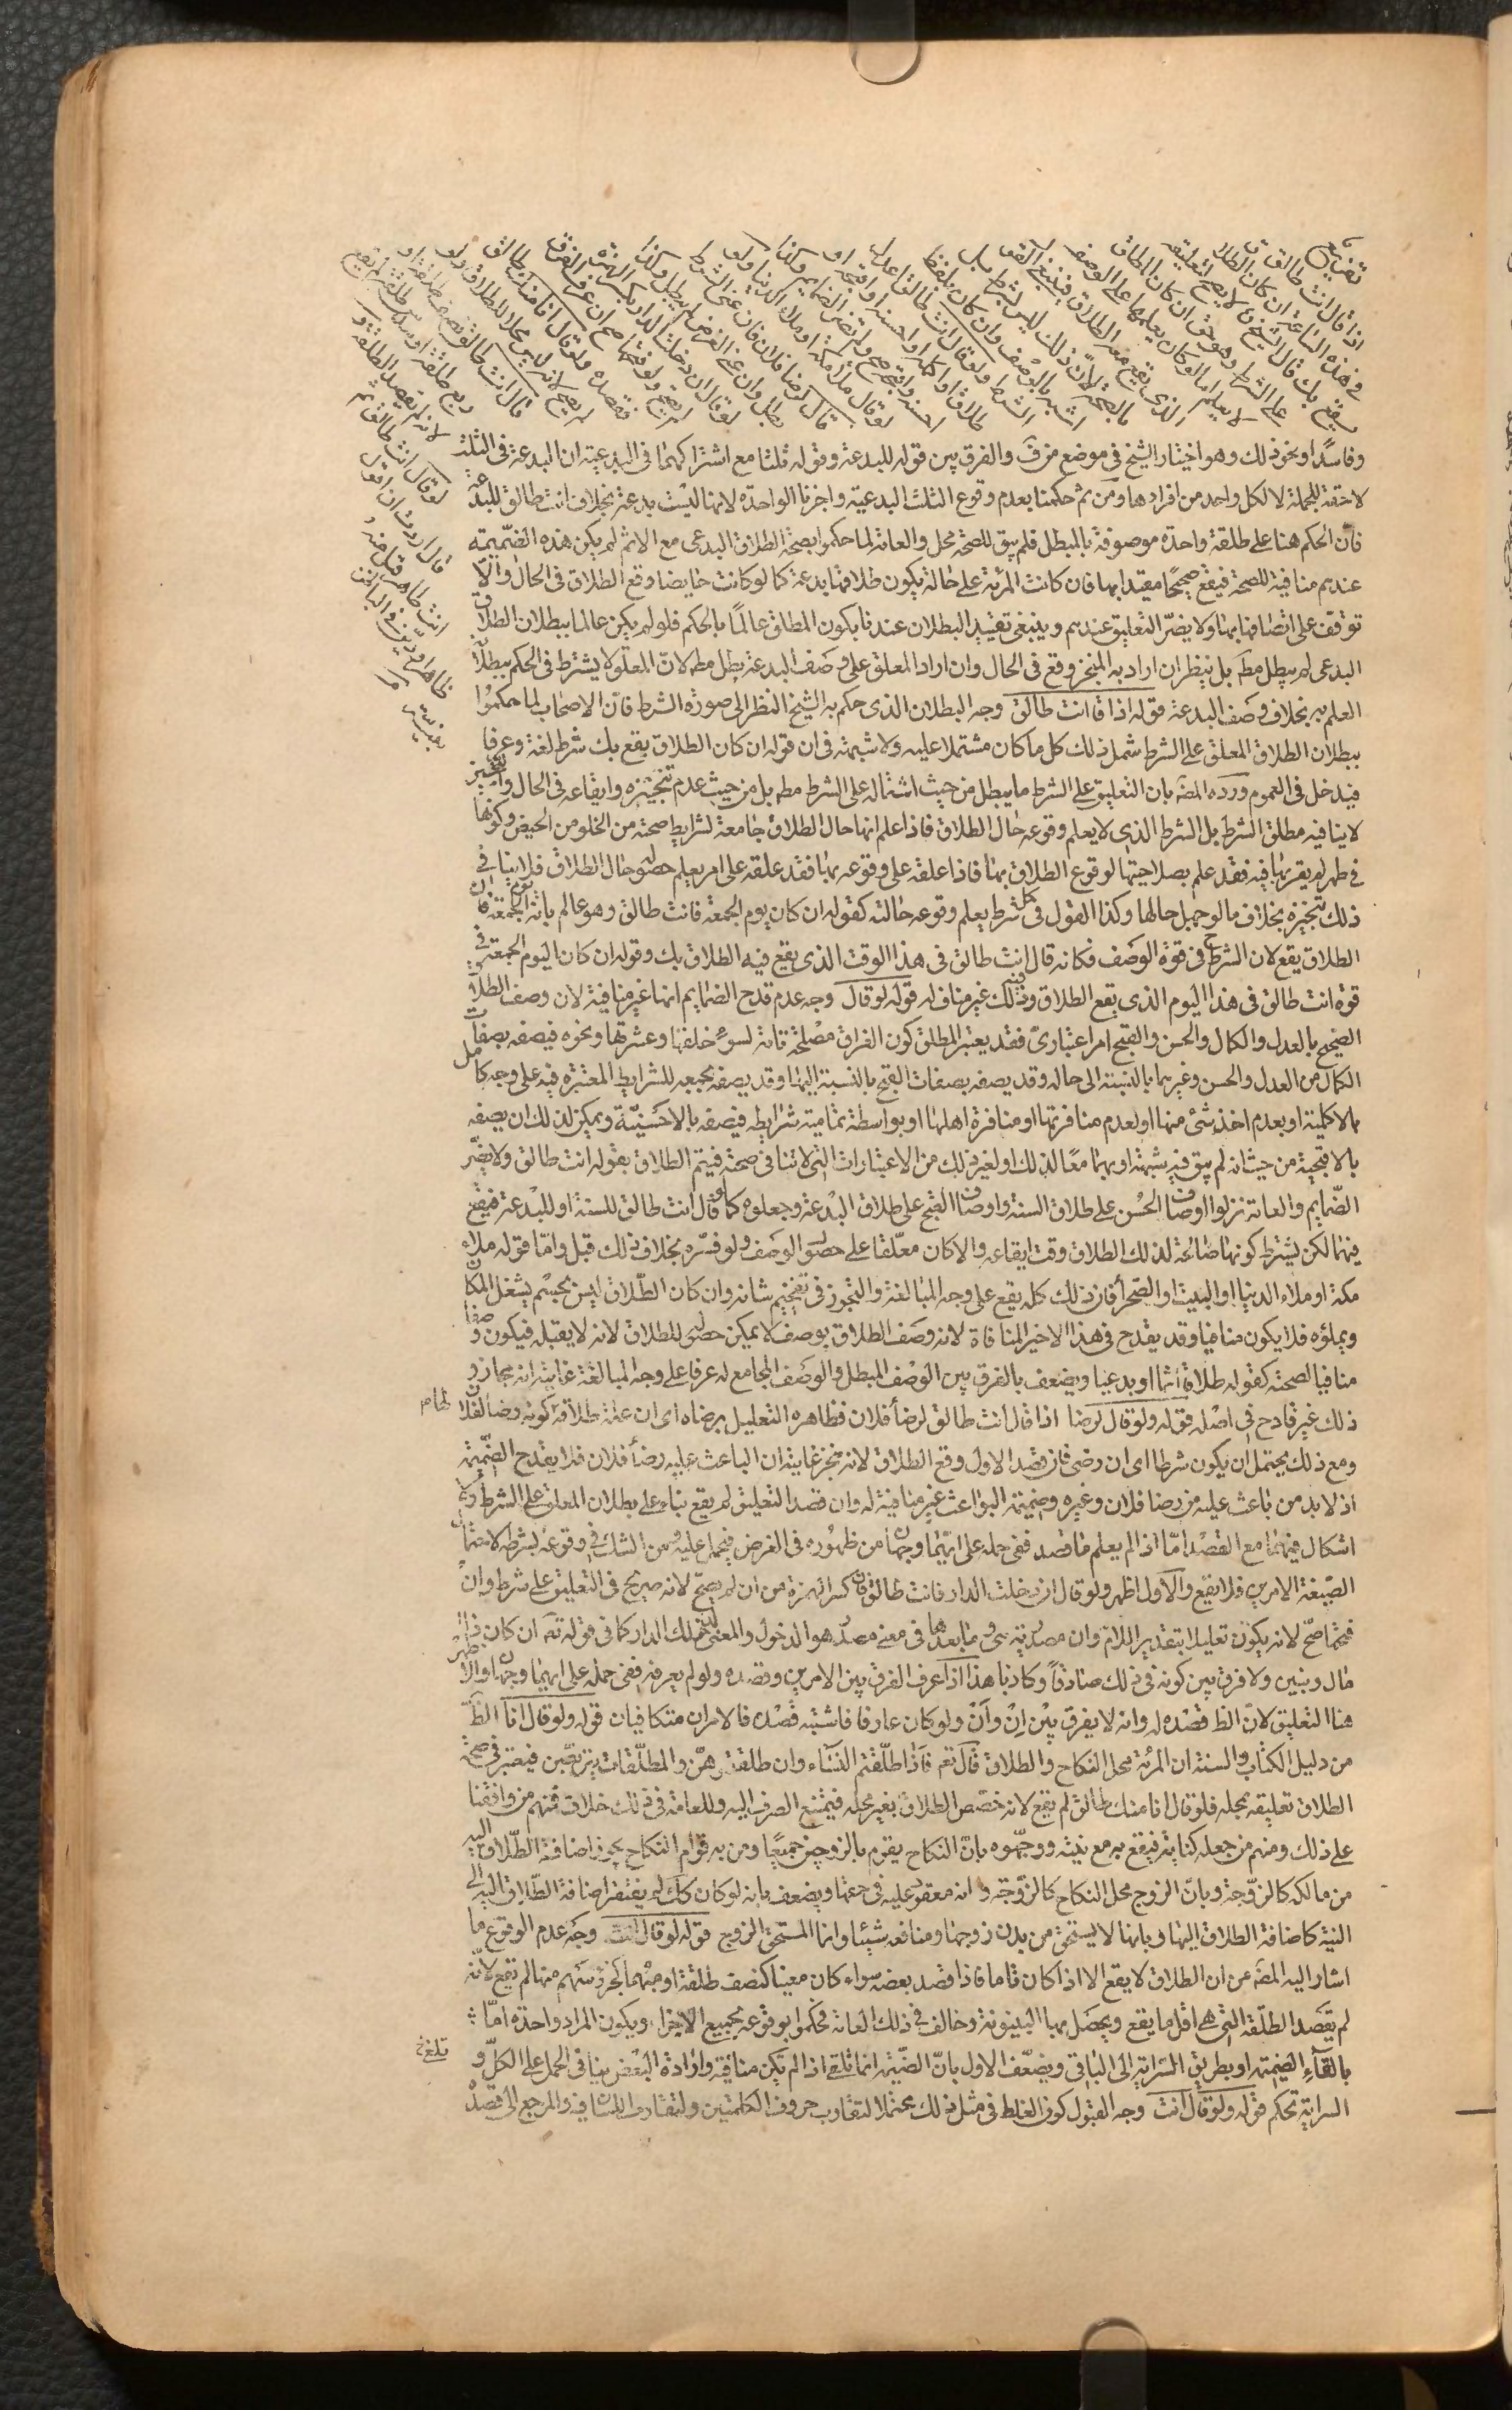 تفريع
اذا قال انت طالق
في هذه الساعة ان كان الطلاق
يقع بك قال الشيخ لا يصح لتعليقه
على الشرط وهو حق ان كان المطلق
لا يعلم اما لو كان يعلمها على الوصف
الذي يقع معه الطلاق فينبغي القول
بالصحة لان ذلك ليس بشرط بل
اشبه بالوصف وان كان بلفظ
الشرط ولو قال انت طالق اعدل
طلاق او اكمله او احسنه او اقبحه او
احسنه واقبحه صح ولم تضر الضمايم وكذا
لو قال ملأ مكة او ملأ الدنيا ولو
قال لرضا فلان فان عنى الشرط
بطل وان عنى الغرض لم يبطل وكذا
لو قال ان دخلت الدار بكسر الهمزة
لم يصح ولو فتحها صح ان عرف الفرق
فقصده ولو قال انا منك طالق
لم يصح لانه ليس محلا للطلاق ولو
قال انت طالق نصف طلقة او
ربع طلقة او سدس طلقة لم يقع
لانه لم يقصد الطلقة و
لو قال انت طالق ثم
قال اردت ان اقول
انت طاهر قبل منه
ظاهرا ودين في الباطن
بنيته
وفاسدًا او نحو ذلك وهو اختيار الشيخ في موضع من ف والفرق بين قوله للبدعة وقوله ثلثا مع اشتراكهما في البدعية ان البدعة في الثلث
لاحقة للجملة لا لكل واحد من افرادها ومن ثم حكمنا بعدم وقوع الثلث البدعية واجزنا الواحدة لانها ليست بدعة بخلاف انت طالق للبدعة
فان الحكم هنا على طلقة واحدة موصوفة بالمبطل فلم يبق للصحة محل والعامة لما حكموا بصحة الطلاق البدعي مع الاثم لم يكن هذه الضميمة
عندهم منافية للصحة فيقع صحيحًا مقيدا بها فان كانت المرئة على حالة يكون طلاقها بدعة كما لو كانت حايضا وقع الطلاق في الحال والا
توقف على اتصافها بها ولا يضر التعليق عندهم وينبغي تقييد البطلان عندنا بكون المطلق عالمًا بالحكم فلو لم يكن عالما ببطلان الطلاق
البدعي لم يبطل مط بل ينظر ان اراد به المنجز وقع في الحال وان اراد المعلق على وصف البدعة بطل مط لان المعلق لا يشترط في الحكم ببطلان
العلم به بخلاف وصف البدعة قوله اذا قا انت طالق وجه البطلان الذي حكم به الشيخ النظر الى صورة الشرط فان الاصحاب لما حكموا
ببطلان الطلاق المعلق على الشرط شمل ذلك كل ما كان مشتملا عليه ولا شبهة في ان قوله ان كان الطلاق يقع بك شرط لغة وعرفا
فيدخل في العموم ورده المصَ بان التعليق على الشرط ما يبطل من حيث اشتماله على الشرط مط بل من حيث عدم تنجيزه وايقاعه في الحال والتنجيز
لا ينافيه مطلق الشرط بل الشرط الذي لا يعلم وقوعه حال الطلاق فاذا علم انها حال الطلاق جامعة لشرايط صحته من الخلو من الحيض وكونها
في طهر لم يقربها فيه فقد علم بصلاحيتها لوقوع الطلاق بها فاذا علقه على وقوعه بها فقد علقه على امر يعلم حصوله حال الطلاق فلا ينافي
ذلك تنجيزه بخلاف ما لو جهل حالها وكذا القول في كل شرط يعلم وقوعه حالته كقوله ان كان يوم الجمعة فانت طالق وهو عالم بانه يوم الجمعة فان
الطلاق يقع لان الشرط ح في قوة الوصف فكانه قال انت طالق في هذا الوقت الذي يقع فيه الطلاق بك وقوله ان كان اليوم الجمعة في
قوة انت طالق في هذا اليوم الذي يقع الطلاق فيه وذلك غير مناف له قوله لو قال وجه عدم قدح الضمايم انها غير منافية لان وصف الطلاق
الصحيح بالعدل والكمال والحسن والقبيح امر اعتباري فقد يعتبر المطلق كون الفراق مصلحة تامة لسوء خلقها وعشرتها ونحوه فيصفه بصفات
الكمال من العدل والحسن وغيرهما بالنسبة الى حاله وقد يصفه بصفات القبح بالنسبة اليها وقد يصفه بجمعه للشرايط المعتبرة فيه على وجه كامل
بالاكملية او بعدم اخذ شئ منها او لعدم منافرتها او منافرة اهلها او بواسطة تمامية شرايطه فيصفه بالاحسنية ويمكن لذلك ان يصفه
بالاقبحية من حيث انه لم يبق فيه شبهة او بهما معًا لذلك او لغير ذلك من الاعتبارات التي لا تنافي صحته فيتم الطلاق بقوله انت طالق ولا يضر
الضمايم والعامة نزلوا اوصاف الحسن على طلاق السنة واوصاف القبح على طلاق البدعة وجعلوه كما لو قال انت طالق للسنة او للبدعة فيقع
فيهما لكن يشترط كونها صالحة لذلك الطلاق وقت ايقاعه والا كان معلقا على حصول الوصف ولو فسره بخلاف ذلك قبل واما قوله ملاء
مكة او ملاء الدنيا او البيت او الصحرا فان ذلك كله يقع على وجه المبالغة والتجوز في تفخيم شانه وان كان الطلاق ليس بجسم يشغل المكان
ويملؤه فلا يكون منافيا وقد يقدح في هذا الاخير المنافاة لانه وصف الطلاق بوصف لا يمكن حصوله للطلاق لانه لا يقبله فيكون وصفا
منافيا لصحته كقوله طلاقا آثما او بدعيا ويضعف بالفرق بين الوصف المبطل والوصف المجامع له عرفا على وجه المبالغة غايته انه مجاز و
ذلك غير قادح في اصله قوله ولو قال لرضا اذا قال انت طالق لرضا فلان فظاهره التعليل برضاه اي ان علة طلاقه كونه رضا لفلان
ومع ذلك يحتمل ان يكون شرطا اي ان رضي فان قصد الاول وقع الطلاق لانه منجز غايته ان الباعث عليه رضا فلان فلا يقدح الضميمة
اذ لا بد من باعث عليه من رضا فلان وغيره وضميمة البواعث غير منافية له وان قصد التعليق لم يقع بناء على بطلان المعلق على الشرط ولا
اشكال فيهما مع القصد اما اذا لم يعلم ما قصد ففي حمله على ايهما وجهان من ظهوره في الغرض فيحمل عليه ومن الشك في وقوعه بشرطه لاحتمال
الصيغة الامرين فلا يقع والاول اظهر ولو قال ان دخلت الدار فانت طالق فان كسر الهمزة من ان لم يصح لانه صريح في التعليق على شرط وان
فتحها صح لانه يكون تعليلا بتقدير اللام وان مصدرية هي وما بعدها في معنى مصدر هو الدخول والمعنى لدخولك الدار كما في قوله تعَ ان كان ذا
مال وبنين ولا فرق بين كونه في ذلك صادقًا وكاذبا هذا اذا عرف الفرق بين الامرين وقصده ولو لم يعرفه ففي حمله على ايهما وجهان والاظهر
هنا التعليق لان الظ قصده له وانه لا يفرق بين اِنْ وَاَنْ ولو كان عارفا فاشتبه قصده فالامران متكافيان قوله ولو قال انا الظَ
من دليل الكتاب والسنة ان المرئة محل النكاح والطلاق قال تعَ فاذا طلقتم النساء وان طلقتموهن والمطلقات يتربصن فيعتبر في صحة
الطلاق تعليقه بمحله فلو قال انا منك طالق لم يقع لانه خصص الطلاق بغير محله فيمتنع الصرف اليه وللعامة في ذلك خلاف فمنهم من وافقنا
على ذلك ومنهم من جعله كناية فيقع به مع نيته ووجهوه بان النكاح يقوم بالزوجين جميعًا ومن به قوام النكاح يجوز اضافة الطلاق اليه
من مالكه كالزوجة وبان الزوج محل النكاح كالزوجة وانه معقود عليه في حقها ويضعف بانه لو كان كذلك لم يفتقر اضافة الطلاق اليه الى
النية كاضافة الطلاق اليها وبانها لا يستحق من بدن زوجها ومنافعه شيئا وانما المستحق الزوج قوله لو قال انت وجه عدم الوقوع ما
اشار اليه المصَ من ان الطلاق لا يقع الا اذا كان تاما فاذا قصد بعضه سواء كان معينا كنصف طلقة او مبهما كجزء وسهم منها لم يقع لانه
لم يقصد الطلقة التي هي اقل ما يقع ويحصل بها البينونة وخالف في ذلك العامة فحكموا بوقوعه بجميع الاجزاء ويكون المراد واحدة اما
بالقاء الضميمة او بطريق السراية الى الباقي ويضعف الاول بان الضميمة انما تلقى اذا لم تكن منافية وارادة البعض ينافي الحمل على الكل و
السراية تحكم قوله ولو قال انت وجه القبول كون الغلط في مثل ذلك محتملا لتقارب حروف الكلمتين ولتقارب اللسان فيه والمرجع الى قصده